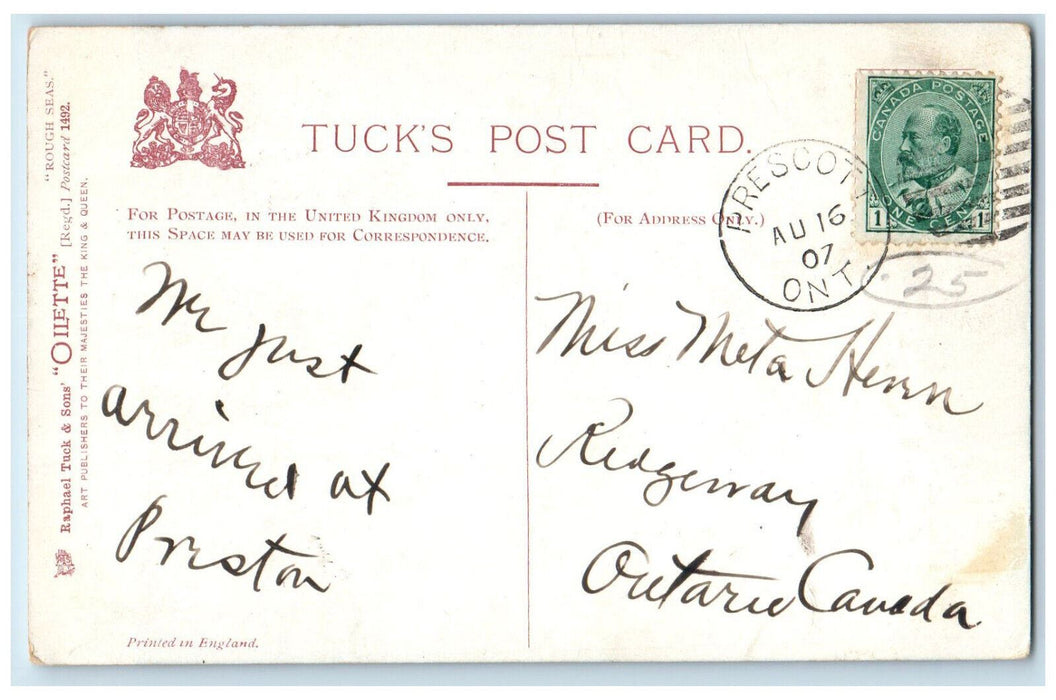 TUCK'S POST CARD.
FOR POSTAGE, IN THE UNITED KINGDOM ONLY,
THIS SPACE MAY BE USED FOR CORRESPONDENCE.
(FOR ADDRESS ONLY.)
We just
arrived at
Preston
Printed in England.
"ROUGH SEAS."
Raphael Tuck & Sons' "OILETTE" [Regd.] Postcard 1492.
ART PUBLISHERS TO THEIR MAJESTIES THE KING & QUEEN.
CANADA POSTAGE
1 ONE CENT 1
PRESCOTT
AU 16
07
ONT
.25
Miss Meta
Ridgeway
Ontario Canada